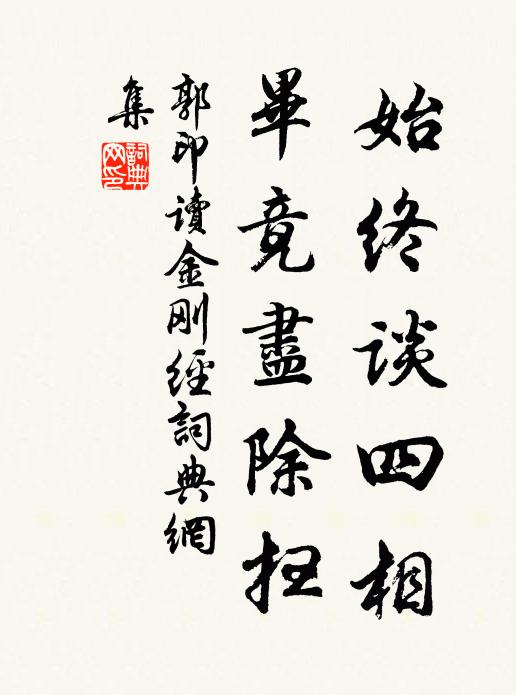 始終談四相
畢竟盡除掃
郭印讀金剛經詞典網
集
詞典
网印